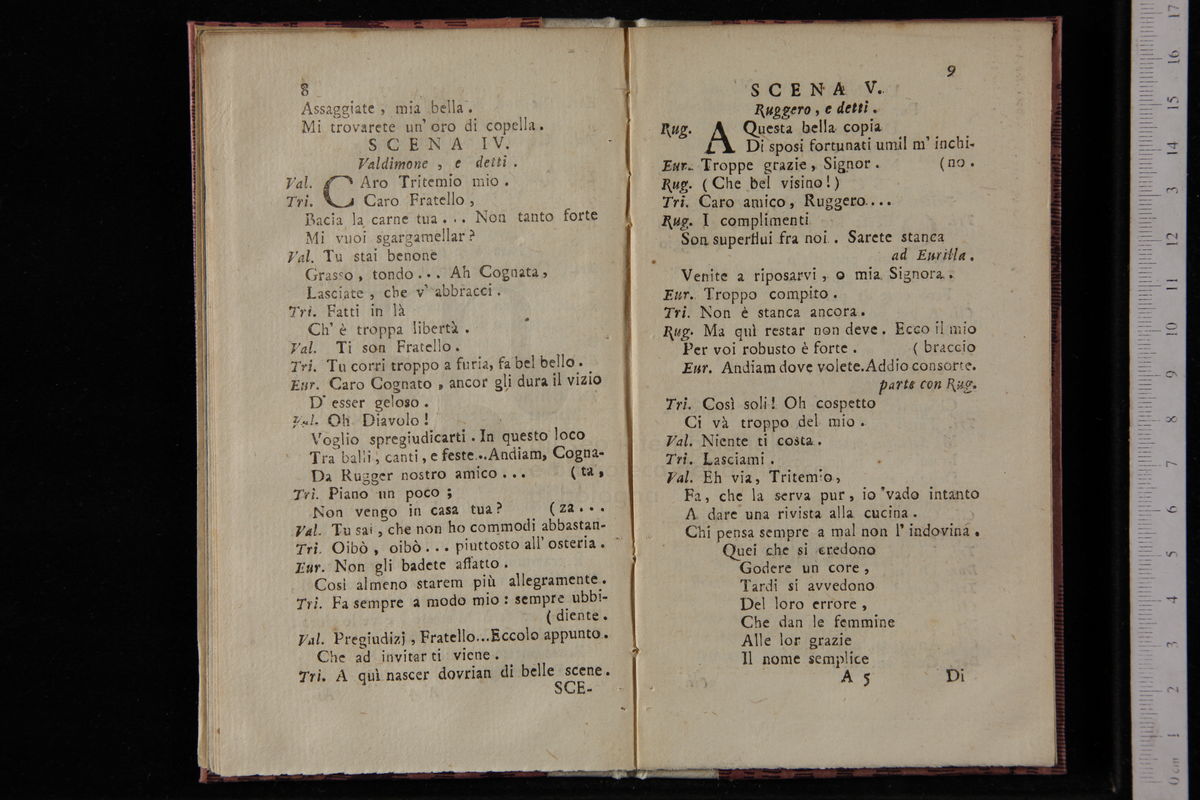 8
Assaggiate , mia bella .
Mi trovarete un' oro di copella .
SCENA IV.
Valdimone , e detti .
Val. CAro Tritemio mio .
Tri. Caro Fratello ,
Bacia la carne tua . . . Non tanto forte
Mi vuoi sgargamellar ?
Val. Tu stai benone
Grasso , tondo . . . Ah Cognata ,
Lasciate , che v' abbracci .
Tri. Fatti in là
Ch' è troppa libertà .
Val. Ti son Fratello .
Tri. Tu corri troppo a furia, fa bel bello .
Eur. Caro Cognato , ancor gli dura il vizio
D' esser geloso .
Val. Oh Diavolo !
Voglio spregiudicarti . In questo loco
Tra balli , canti , e feste . . Andiam, Cogna-
Da Rugger nostro amico . . . ( ta ,
Tri. Piano un poco ;
Non vengo in casa tua ? ( za . . .
Val. Tu sai , che non ho commodi abbastan-
Tri. Oibò , oibò . . . piuttosto all' osteria .
Eur. Non gli badete affatto .
Così almeno starem più allegramente .
Tri. Fa sempre a modo mio : sempre ubbi-
( diente .
Val. Pregiudizj , Fratello...Eccolo appunto .
Che ad invitar ti viene .
Tri. A quì nascer dovrian di belle scene .
SCE-
9
SCENA V.
Ruggero , e detti .
Rug. A Questa bella copia
Di sposi fortunati umil m' inchi-
Eur. Troppe grazie , Signor . ( no .
Rug. ( Che bel visino ! )
Tri. Caro amico , Ruggero . . . .
Rug. I complimenti
Son superflui fra noi . Sarete stanca
ad Eurilla .
Venite a riposarvi , o mia Signora .
Eur. Troppo compito .
Tri. Non è stanca ancora .
Rug. Ma quì restar non deve . Ecco il mio
Per voi robusto è forte . ( braccio
Eur. Andiam dove volete.Addio consorte.
parte con Rug.
Tri. Così soli ! Oh cospetto
Ci và troppo del mio .
Val. Niente ti costa .
Tri. Lasciami .
Val. Eh via , Tritemio ,
Fa , che la serva pur , io vado intanto
A dare una rivista alla cucina .
Chi pensa sempre a mal non l' indovina .
Quei che si credono
Godere un core ,
Tardi si avvedono
Del loro errore ,
Che dan le femmine
Alle lor grazie
Il nome semplice
A 5 Di
0 cm 1 2 3 4 5 6 7 8 9 10 11 12 13 14 15 16 17